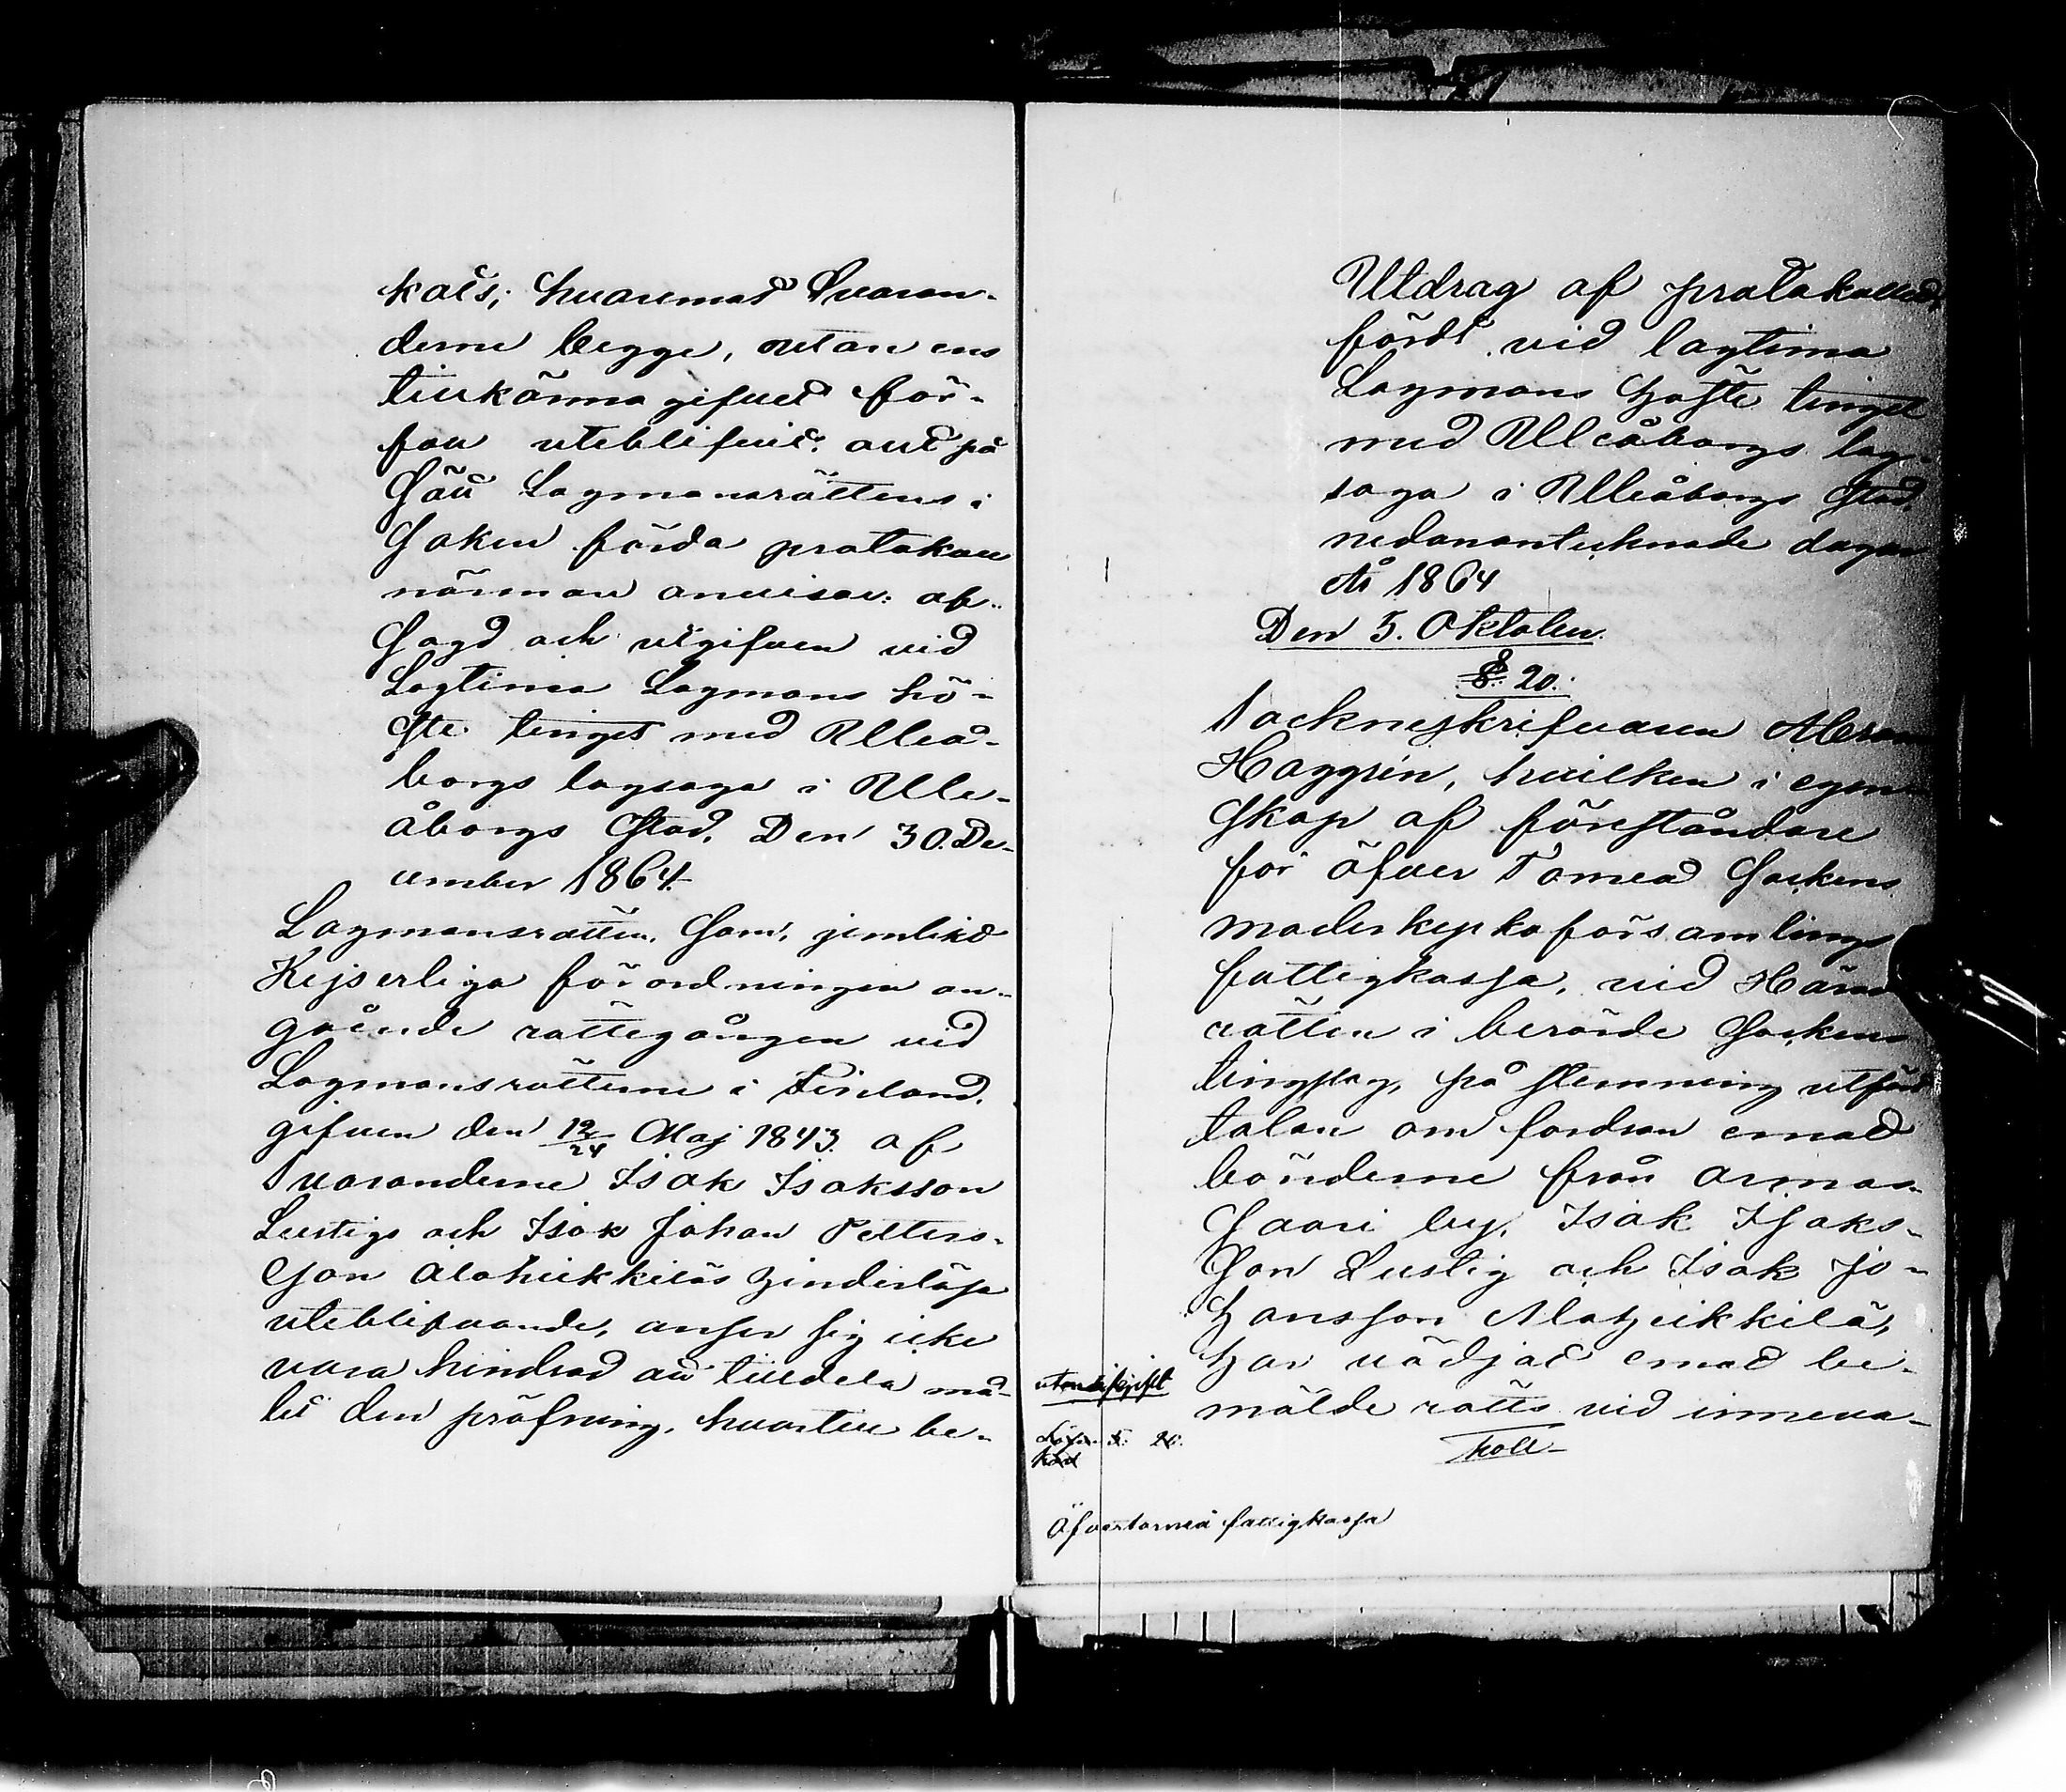 kats; hvaremot Svaran-
derne begge, utan ens
tillkännagifvet för-
fall uteblifvit; allt på
sätt Lagmansrättens i
Saken förda protokoll
närmare utvisar: af-
sagd och utgifven vid
Lagtima Lagmans hö-
ste tinget med Uleå-
borgs lagsaga i Ule-
åborgs Stad, Den 30. De-
cember 1864.
Lagmansrätten, som, jemlikt
Kejserliga förordningen an-
gående rättegången vid
Lagmansrätterne i Finland,
gifven den 12/24 Maj 1843. af
Svaranderne Isak Isaksson
Lustigs och Isak Johan Petters-
son Alahiekkiläs hinderlösa
uteblifvande, anser sig icke
vara hindrad att tilldela må-
let den pröfning, hvartill be-
Utdrag af protokollet,
fördt vid lagtima
Lagmans höste tinget
med Uleåborgs lag-
saga i Uleåborgs Stad,
nedanantecknade dagar
År 1864
Den 5. Oktober.
§ 20.
Sockneskrifvaren Abram
Häggrén, hvilken i egen-
skap af föreståndare
för Öfver Torneå Sockens
moderkyrkoförsamlings
fattigkassa, vid Härads
rätten i berörde Sockens
tingslag, på stemning utfört
talan om fordran emot
bönderne från Armas-
Saari by, Isak Isaks-
son Lustig och Isak Jo-
hansson Alahiekkilä,
har vädjat emot be-
mälde rätts vid inneva-
utandifskjift
Lösen S: 20.
Öfvertorneå fattigkassa